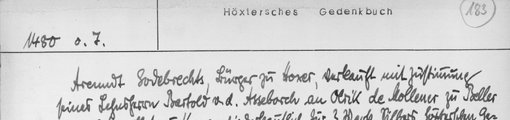 Höxtersches Gedenkbuch
183
1480 o. J.
Arenndt Godebrechts, Bürger zu Hoxer, verkauft mit Zustimmung
seines Lehnsherrn Bartold v. d. Asseborch an Olrik de Mollener zu Boller
für 3 Mark